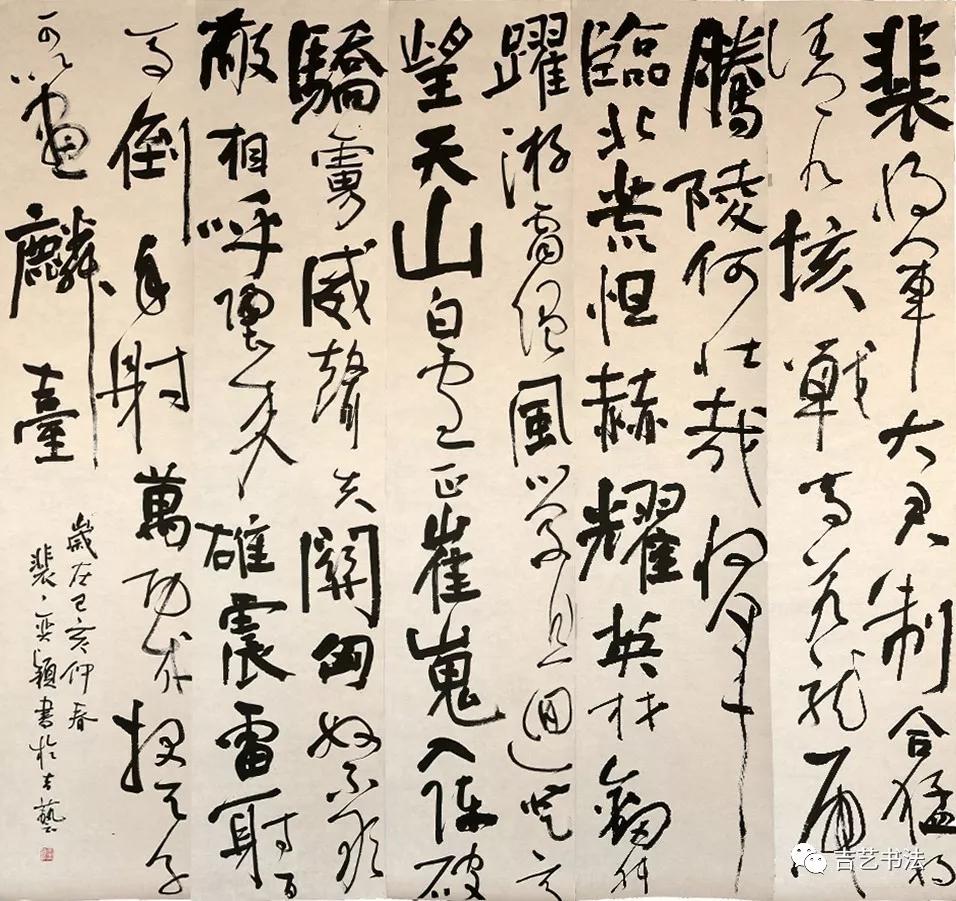 裴将軍大君制合猛将
清九垓戰馬若龍虎
騰陵何壯哉将軍
臨北荒恒赫耀英材劍舞
躍游雷随風縈且迴登高
望天山白雪正崔嵬入陣破
驕虜威聲夫開匈奴不敢
敵相呼歸来雄震雷射百
馬倒再射萬功成報天子
可以畫麟臺
歲在己亥仲春
裴奕穎書於吉藝
吉艺书法